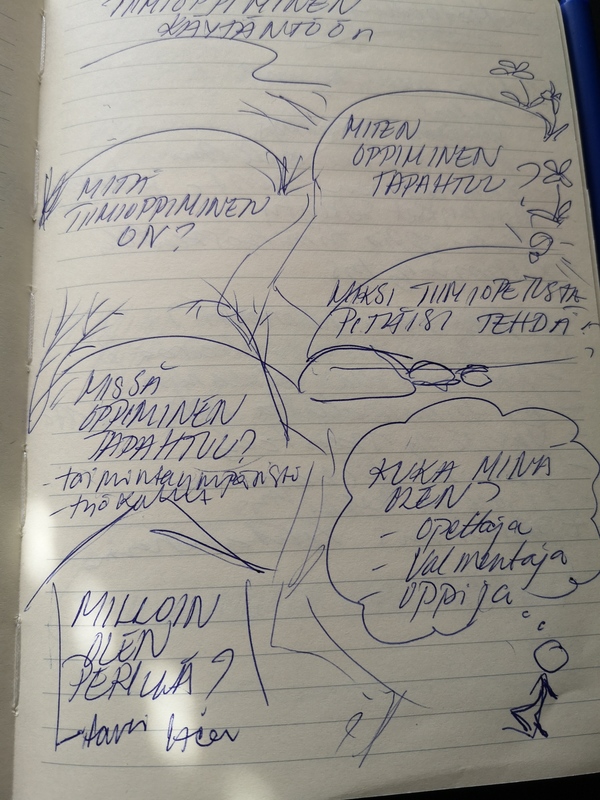 TIIMIOPPIMINEN
KÄYTÄNTÖÖN
MITÄ
TIIMIOPPIMINEN
ON?
MITEN
OPPIMINEN
TAPAHTUU?
MIKSI TIIMIOPETUSTA
PITÄISI TEHDÄ?
MISSÄ
OPPIMINEN
TAPAHTUU?
- toimintaympäristö
- työkalut
KUKA MINÄ
OLEN?
- Opettaja
- Valmentaja
oppija
MILLOIN
OLEN
PERILLÄ?